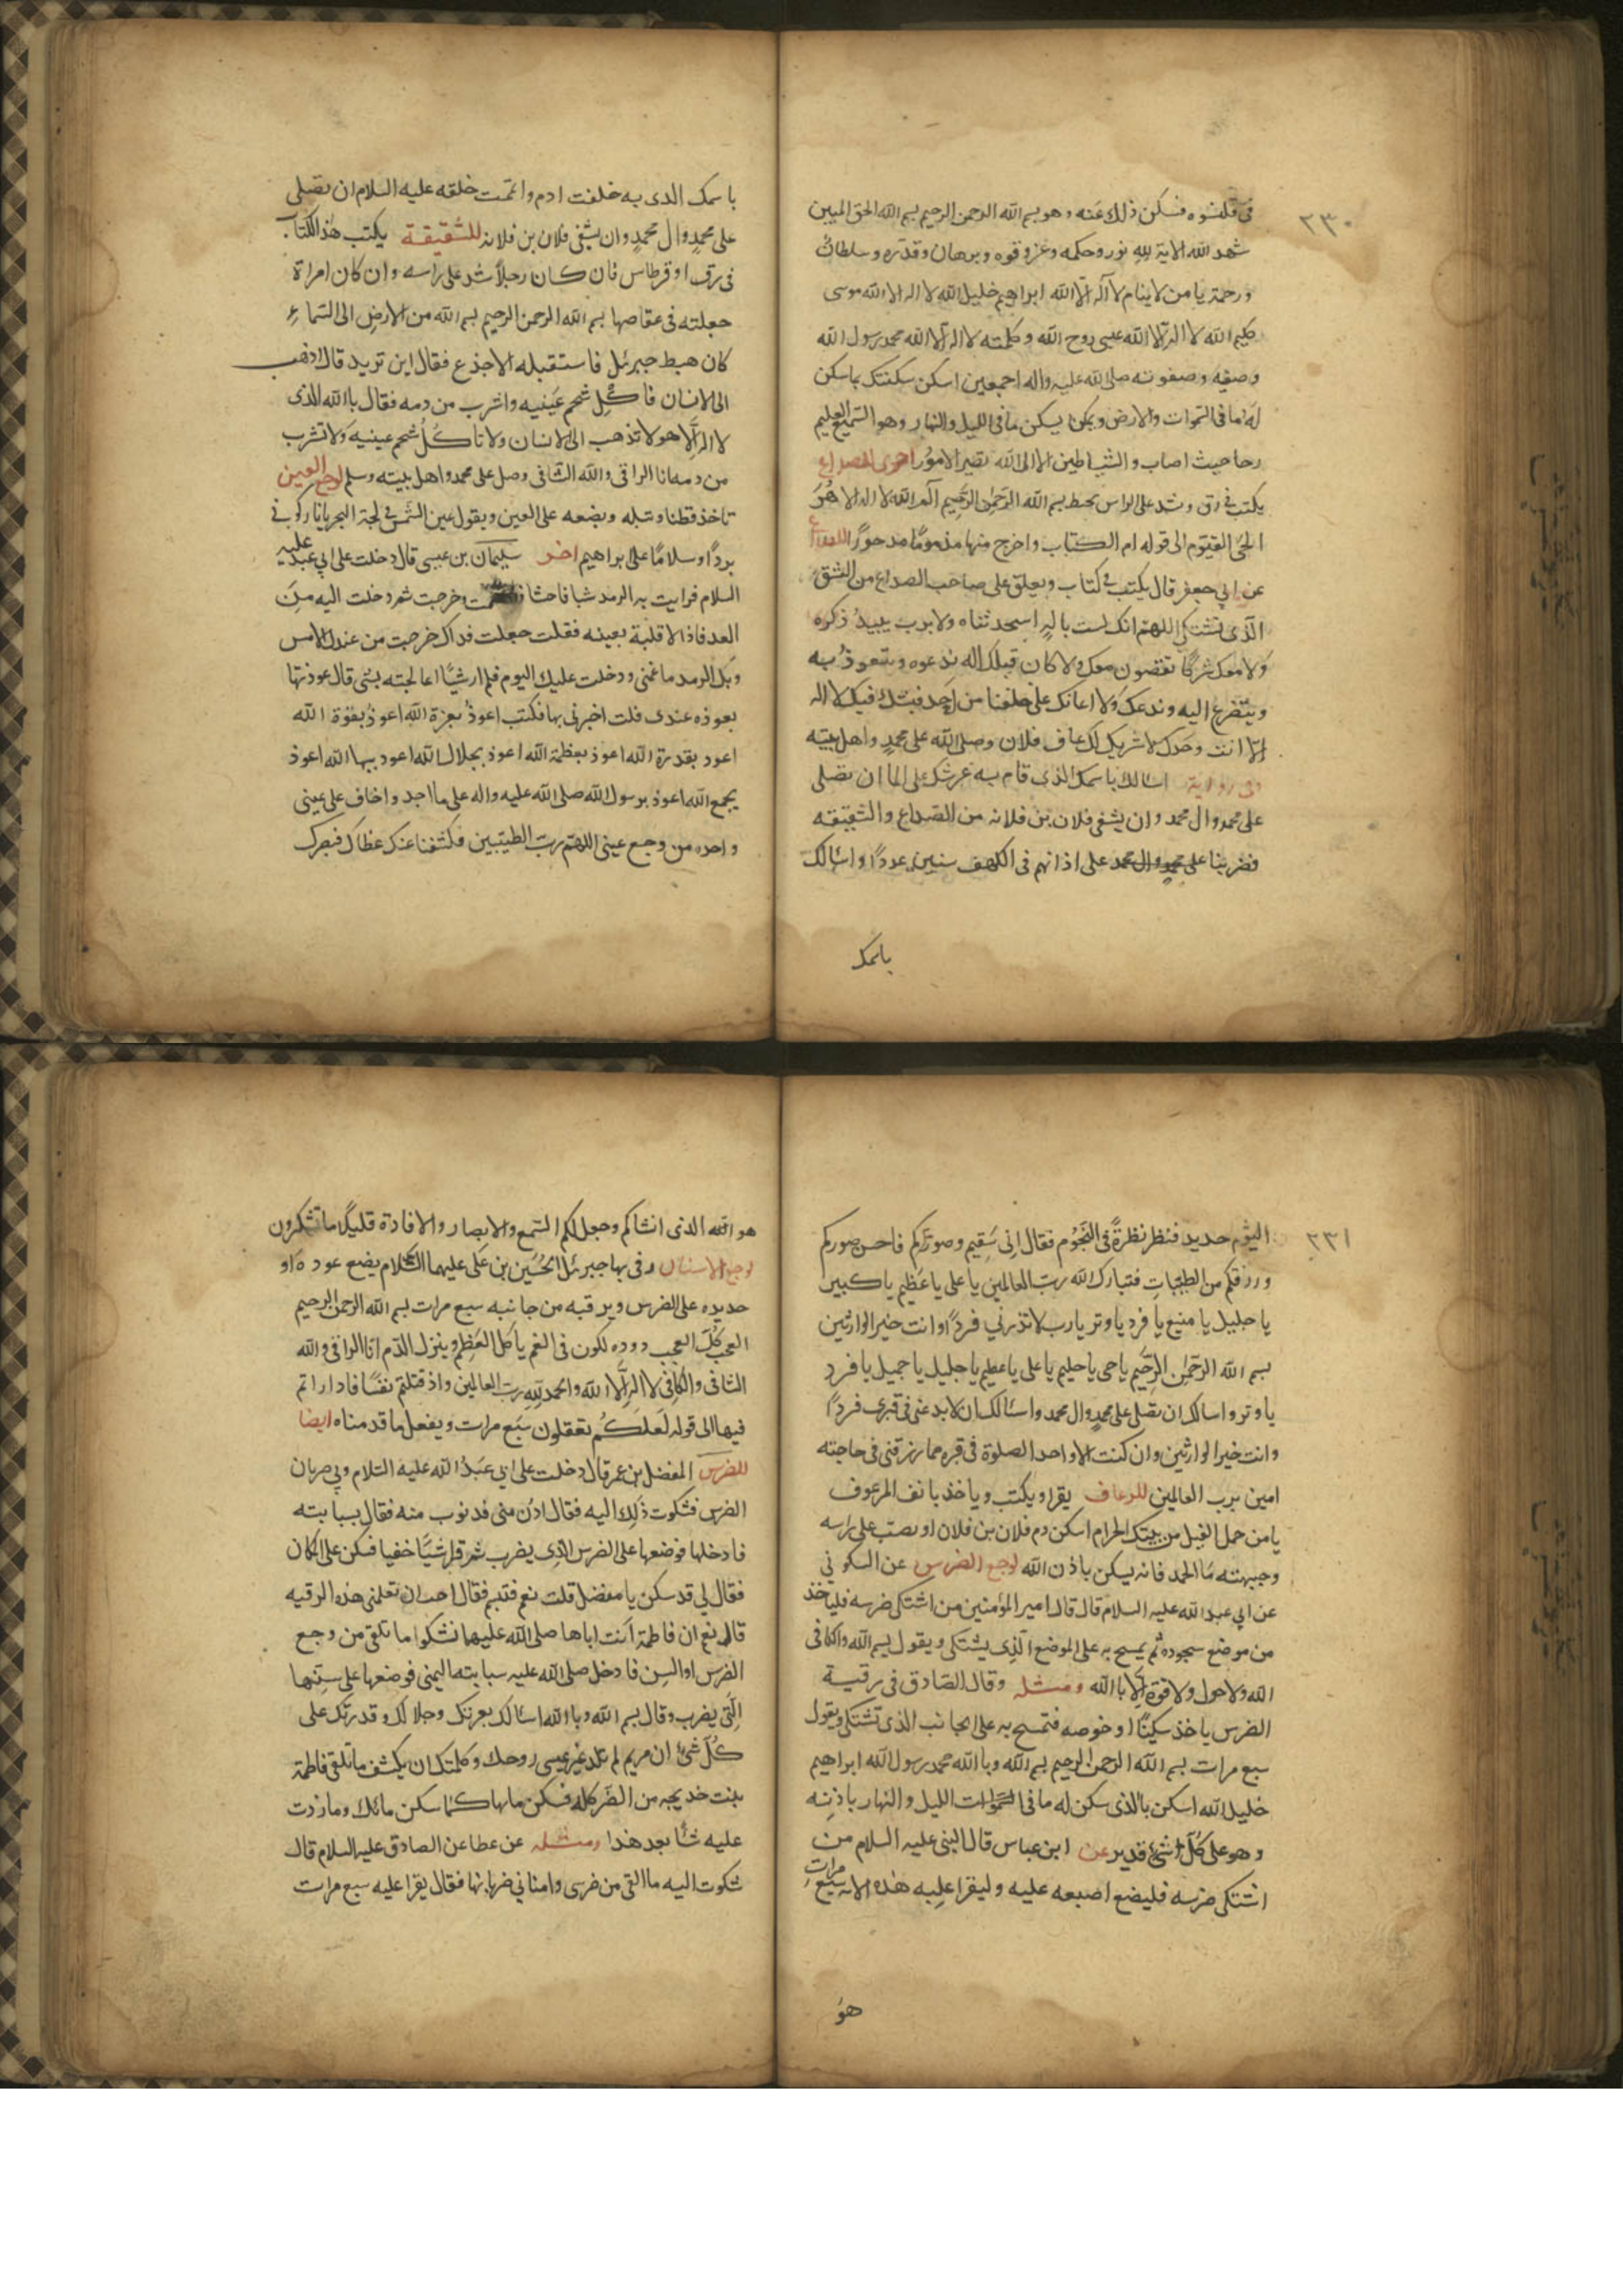 ٢٣٠
فى قلنسوه فسكن ذلك عنه وهو بسم الله الرحمن الرحيم بسم الله الحق المبين
شهد الله الاية لله نور وحكمه وعز وقوه وبرهان وقدره وسلطان
ورحمة يا من لا ينام لا آله الا الله ابراهيم خليل الله لا اله الا الله موسى
كليم الله لا اله الا الله عيسى روح الله وكلمته لا اله الا الله محمد رسول الله
وصفيه وصفوته صلى الله عليه واله اجمعين اسكن سكنتك بما سكن
له ما فى السموات والارض وبمن يسكن ما فى الليل والنهار وهو السميع العليم
رخا حيث اصاب والشياطين الا الى الله تصير الامور اخرى للصداع
يكتب فى رق ويشد على الراس بخيط بسم الله الرحمن الرحيم آلم الله لا اله الا هو
الحى القيوم الى قوله ام الكتاب واخرج منها مذموما مدحورا للصداع
عن ابي جعفر قال يكتب فى كتاب ويعلق على صاحب الصداع من الشق
الذى يشتكى اللهم انك لست باله استحدثناه ولا برب يبيد ذكره
ولا معك شركا يقضون معك ولا كان قبلك اله ندعوه ونتعوذ به
ونتضرع اليه وندعك ولا اعانك على خلقنا من احد فنشك فيك لا اله
الا انت وحدك لا شريك لك عاف فلان وصلى الله على محمد واهل بيته
وفى رواية اسالك باسمك الذى قام به عرشك على الما ان تصلى
على محمد وال محمد وان يشفى فلان بن فلانه من الصداع والشقيقه
فضربنا على محمد وال محمد على اذانهم فى الكهف سنين عددا واسالك
باسمك
باسمك الذى به خلقت ادم واتممت خلقه عليه السلام ان تصلى
على محمد وال محمد وان يشفى فلان بن فلانه للشقيقة يكتب هذا الكتاب
فى رق او قرطاس فان كان رجلا شد على راسه وان كان امراة
جعلته فى عقاصها بسم الله الرحمن الرحيم بسم الله من الارض الى السماء
كان هبط جبرئل فاستقبله الاجذع فقال اين تريد قال اذهب
الى الانسان فاكل شحم عينيه واشرب من دمه فقال بالله الذى
لا اله الا هو لا تذهب الى الانسان ولا تاكل شحم عينيه ولا تشرب
من دمه انا الراقى والله الشافى وصل على محمد واهل بيته وسلم لوجع العين
تاخذ قطنا وتبله ويضعه على العين ويقول عين الشمس فى لجة البحر يا نار كونى
بردا وسلاما على ابراهيم اخر سليمان بن عيسى قال دخلت على ابي عبد عليه
السلام فرايت به الرمد شيا فاحشا وخرجت ثم دخلت اليه من
الغد فاذا لا قلبة بعينه فقلت جعلت فداك خرجت من عندك الامس
وبك الرمد ما غمنى ودخلت عليك اليوم فلم ار شيا اعالجته بشى قال عوذتها
بعوذه عندى قلت اخبرنى بها فكتب اعوذ بعزة الله اعوذ بقوة الله
اعوذ بقدرة الله اعوذ بعظمة الله اعوذ بجلال الله اعوذ ببها الله اعوذ
بجمع الله اعوذ برسول الله صلى الله عليه واله على ما اجد واخاف على عينى
واجده من وجع عينى اللهم رب الطيبين فكشفنا عنك غطاك فبصرك
٢٣١
اليوم حديد فنظر نظرة فى النجوم فقال انى سقيم وصوركم فاحسن صوركم
ورزقكم من الطيبات فتبارك الله رب العالمين يا على يا عظيم يا كبير
يا جليل يا منيع يا فرد يا وتر يا رب لا تذرني فردا وانت خير الوارثين
بسم الله الرحمن الرحيم يا حى يا حليم يا على يا عظيم يا جليل يا جميل يا فرد
يا وتر واسالك ان تصلى على محمد وال محمد واسالك ان لا تدعنى فى قبرى فردا
وانت خير الوارثين وان كنت الاواحد الصلوة فى قبره مما رزقنى فى حاجته
امين برب العالمين للرعاف يقرا ويكتب وياخذ بانف المرعوف
يا من حمل الفيل من بيتك الحرام اسكن دم فلان بن فلان او يصب على راسه
وجبهته ما الحمد فانه يسكن باذن الله لوجع الضرس عن السكونى
عن ابي عبد الله عليه السلام قال قال امير المؤمنين من اشتكى ضرسه فلياخذ
من موضع سجوده ثم يمسح به على الموضع الذى يشتكى ويقول بسم الله والكافى
الله ولا حول ولا قوة الا بالله ومثله وقال الصادق فى رقية
الضرس ياخذ سكينا او خوصه فتمسح به على الجانب الذى تشتكى ويقول
سبع مرات بسم الله الرحمن الرحيم بسم الله وبالله محمد رسول الله ابراهيم
خليل الله اسكن بالذى سكن له ما فى السموات الليل والنهار باذنه
وهو على كل شئ قدير عن ابن عباس قال النبى عليه السلام من
اشتكى ضرسه فليضع اصبعه عليه وليقرا عليه هذه الايه سبع مرات
هو
هو الله الذى انشاكم وجعل لكم السمع والابصار والافادة قليلا ما تشكرون
لوجع الاسنان رقى بها جبرئل الحسين بن على عليهما السلام يضع عود ه او
حديده على الضرس ويرقيه من جانبه سبع مرات بسم الله الرحمن الرحيم
العجب كل العجب دوده تكون فى الفم ياكل العظم وينزل الدم انا الراقى والله
الشافى والكافى لا اله الا الله والحمد لله رب العالمين واذ قتلتم نفسا فاداراتم
فيها الى قوله لعلكم تعقلون سبع مرات ويفعل ما قدمناه ايضا
للضرس المفضل بن عمر قال دخلت على ابي عبد الله عليه السلام وبي ضربان
الضرس فشكوت ذلك اليه فقال ادن منى فدنوت منه فقال بسبابته
فادخلها فوضعها على الضرس الذى يضرب ثم قرا شيا خفيا فسكن على المكان
فقال لي قد سكن يا مفضل قلت نعم فتبسم فقال احب ان تعلمنى هذه الرقيه
قال نعم ان فاطمة اتت اباها صلى الله عليهما تشكوا ما تلقى من وجع
الضرس او السن فادخل صلى الله عليه سبابته اليمنى فوضعها على سنها
التى يضرب وقال بسم الله وبالله اسالك بعزتك وجلالك وقدرتك على
كل شئ ان مريم لم تلد غير عيسى روحك وكلمتك ان يكشف ما تلقى فاطمة
بنت خديجه من الضر كله فسكن ما بها كما سكن مابك وما زدت
عليه شأ بعد هذا ومثله عن عطا عن الصادق عليه السلام قال
شكوت اليه ما القى من ضرسى واسناني ضربانها فقال يقرا عليه سبع مرات